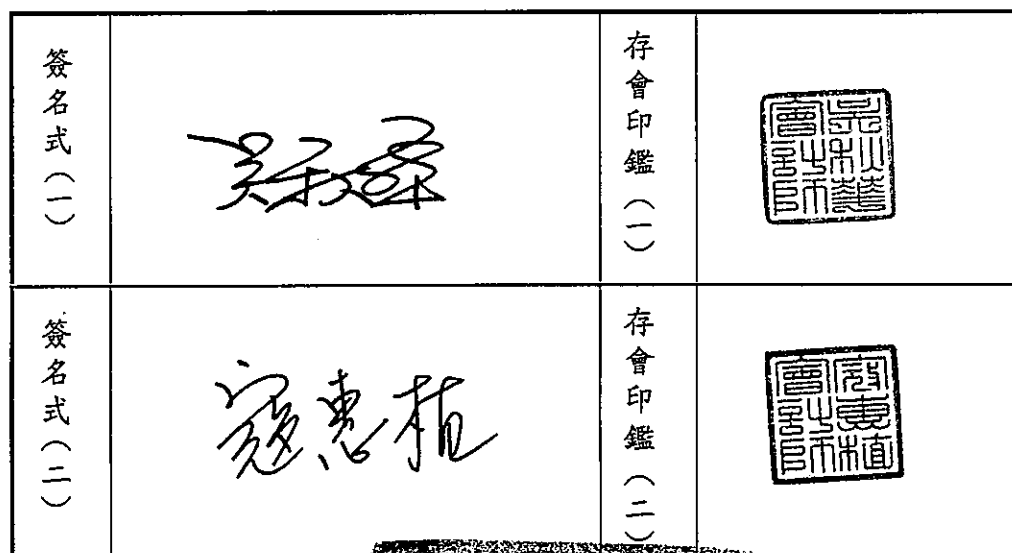 簽名式(一)
吳秋華
存會印鑑(一)
吳秋華會計師
簽名式(二)
寇惠植
存會印鑑(二)
寇惠植會計師